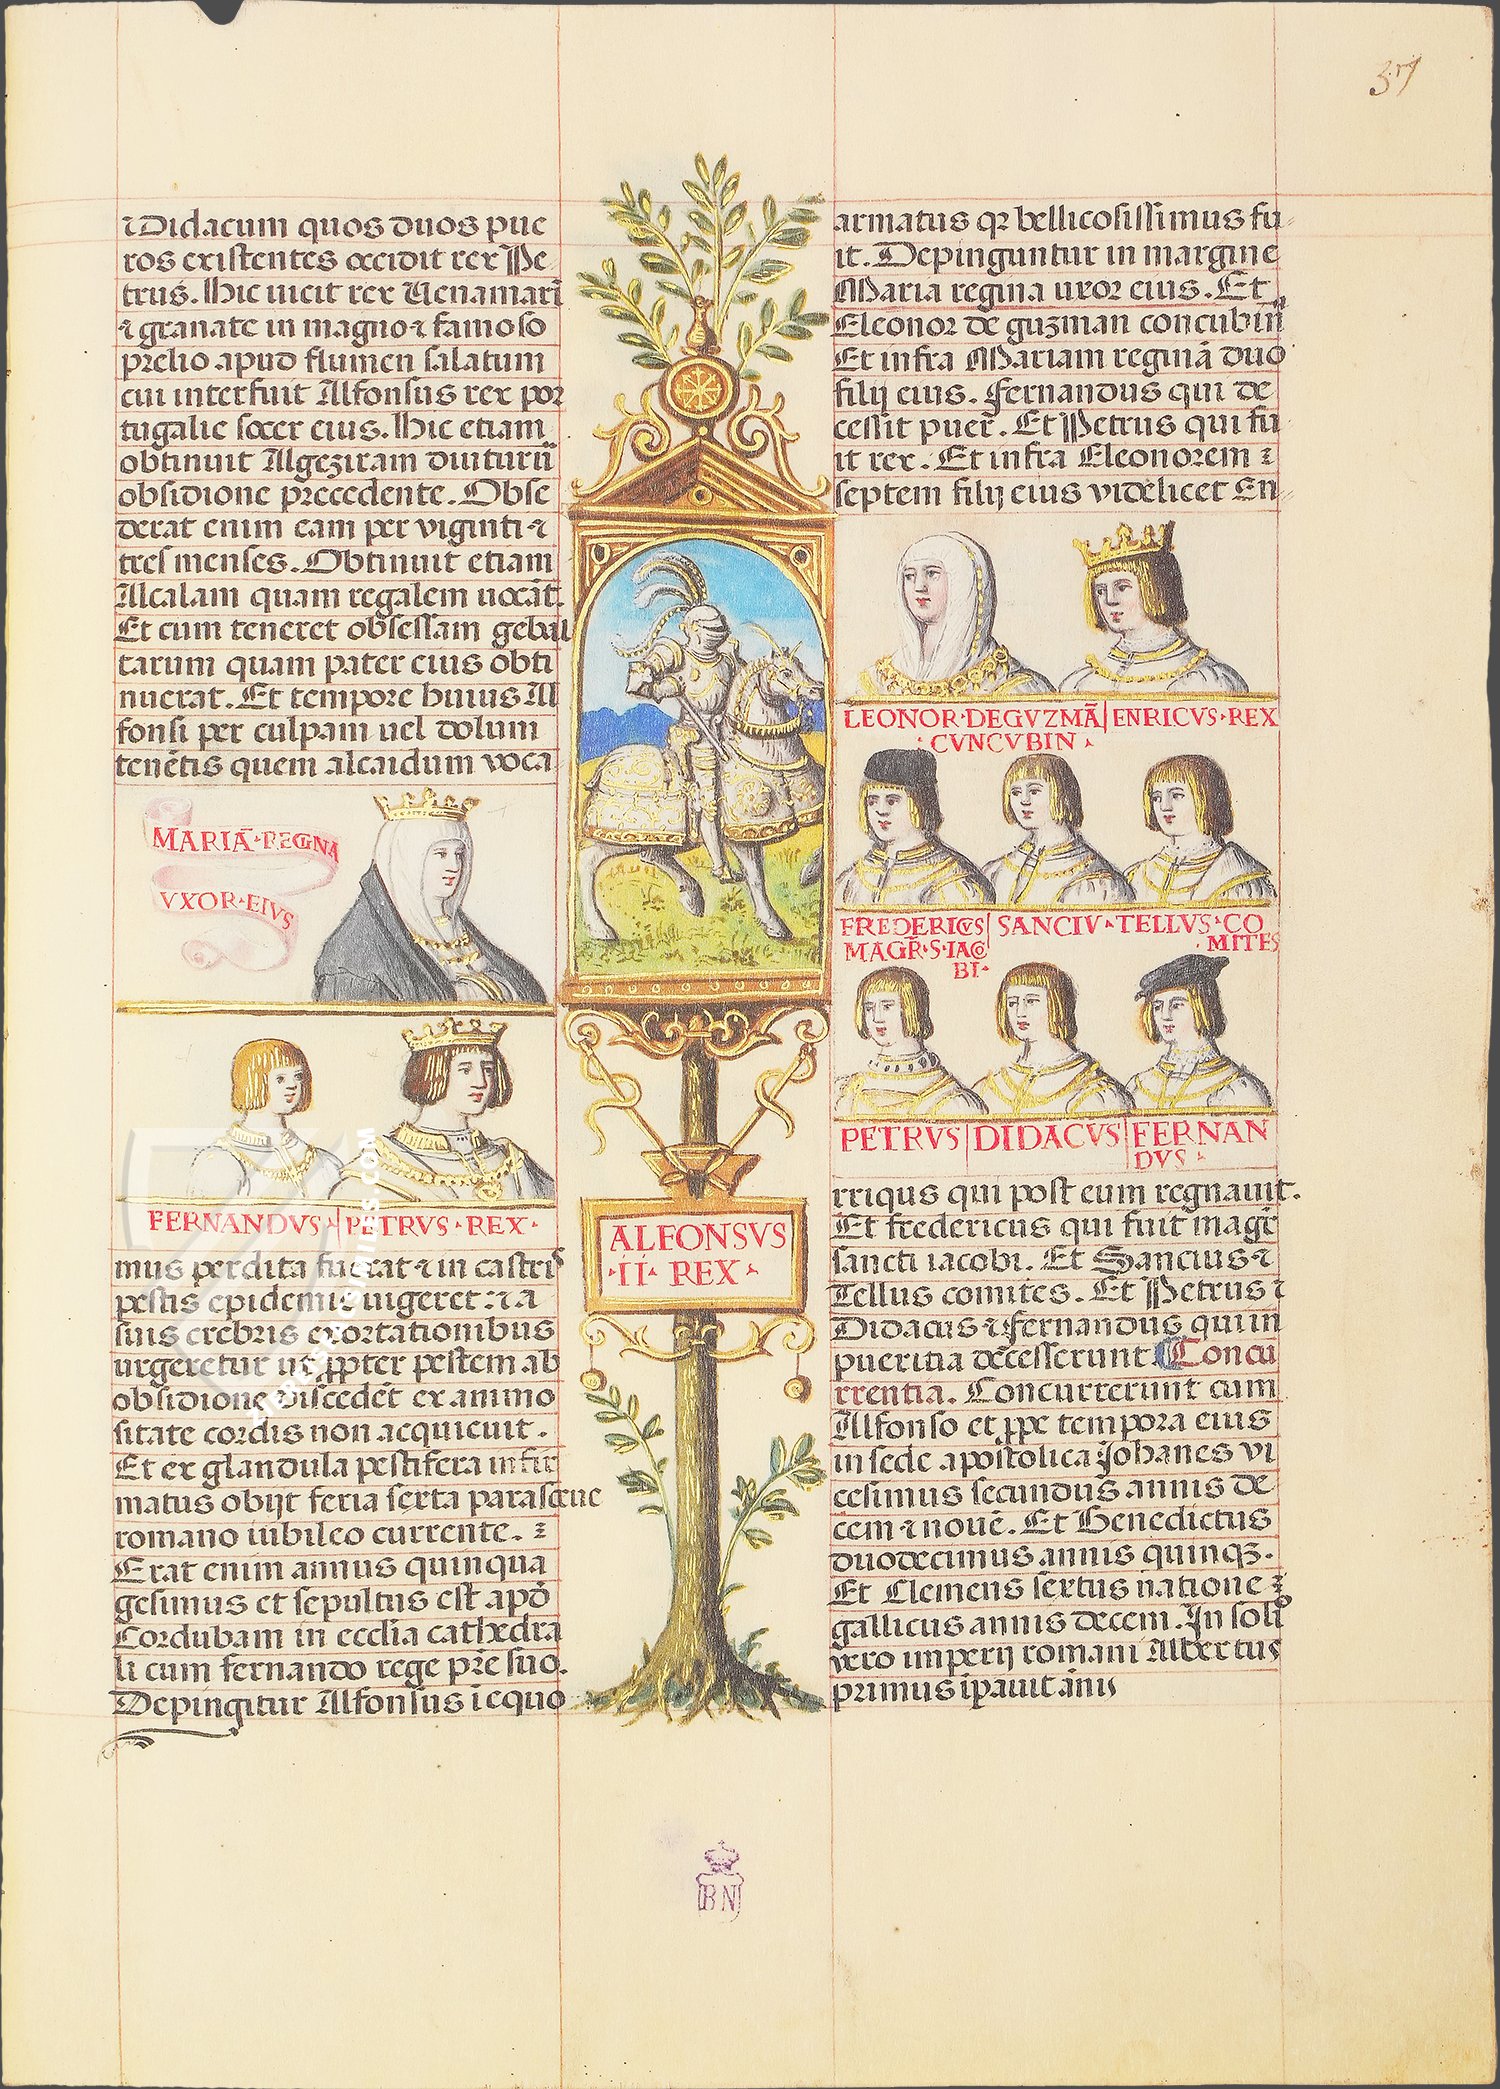 37
⁊ Didacum quos duos pue
ros existentes occidit rex Pe
trus. Hic uicit rex Uenamari
⁊ granate in magno ⁊ famoso
prelio apud flumen salatum
cui interfuit Alfonsus rex por
tugalie socer eius. Hic etiam
obtinuit Algeziram diuturñ
obsidione precedente. Obse
derat enim eam per viginti ⁊
tres menses. Obtinuit etiam
Alcalam quam regalem uocãt.
Et cum teneret obsessam gebal
tarum quam pater eius obti
nuerat. Et tempore huius Al
fonsi per culpam uel dolum
tenẽtis quem alcaidum voca
MARIÃ·REGINA
VXOR·EIVS
FERNANDVS· PETRVS·REX·
mus perdita fuerat ⁊ in castris
pestis epidemie uigeret: ⁊ a
suis crebris exortationibus
urgeretur ut ꝓpter pestem ab
obsidione discedẽt ex animo
sitate cordis non acquieuit.
Et ex glandula pestifera infir
matus obijt feria sexta parasceue
romano iubileo currente.
Erat enim annus quinqua
gesimus et sepultus est apõ
Cordubam in ecclia cathedra
li cum fernando rege pr̃e suo.
Depingitur Alfonsus ĩ equo
ALFONSVS
·II· REX·
armatus qꝛ bellicosissimus fu
it. Depinguntur in margine
Maria regina uxor eius. Et
Eleonor de guzman concubiñ
Et infra Mariam reginã duo
filij eius. Fernandus qui de
cessit puer̃. Et Petrus qui fu
it rex. Et infra Eleonorem ⁊
septem filij eius videlicet En
LEONOR·DEGVZMÃ ENRICVS·REX
·CVNCVBIN·
FREDERICVS SANCIV·TELLVS·CO
MAGR̃·S·IACO ·MITES
BI·
PETRVS DIDACVS FERNAN
DVS·
rriqus qui post eum regnauit.
Et fredericus qui fuit magr̃
sancti iacobi. Et Sancius ⁊
Tellus comites. Et Petrus ⁊
Didacus ⁊ Fernandus qui in
pueritia dẽcesserunt. Concu
rrentia. Concurrerunt cum
Alfonso et ꝓpe tempora eius
in sede apostolica Johanes vi
cesimus secundus annis de
cem ⁊ nouẽ. Et Benedictus
duodecimus annis quinqꝫ.
Et Clemens sextus natione
gallicus annis decem. In soli
vero imperij romani Albertus
primus ĩpauit ãnis
BN